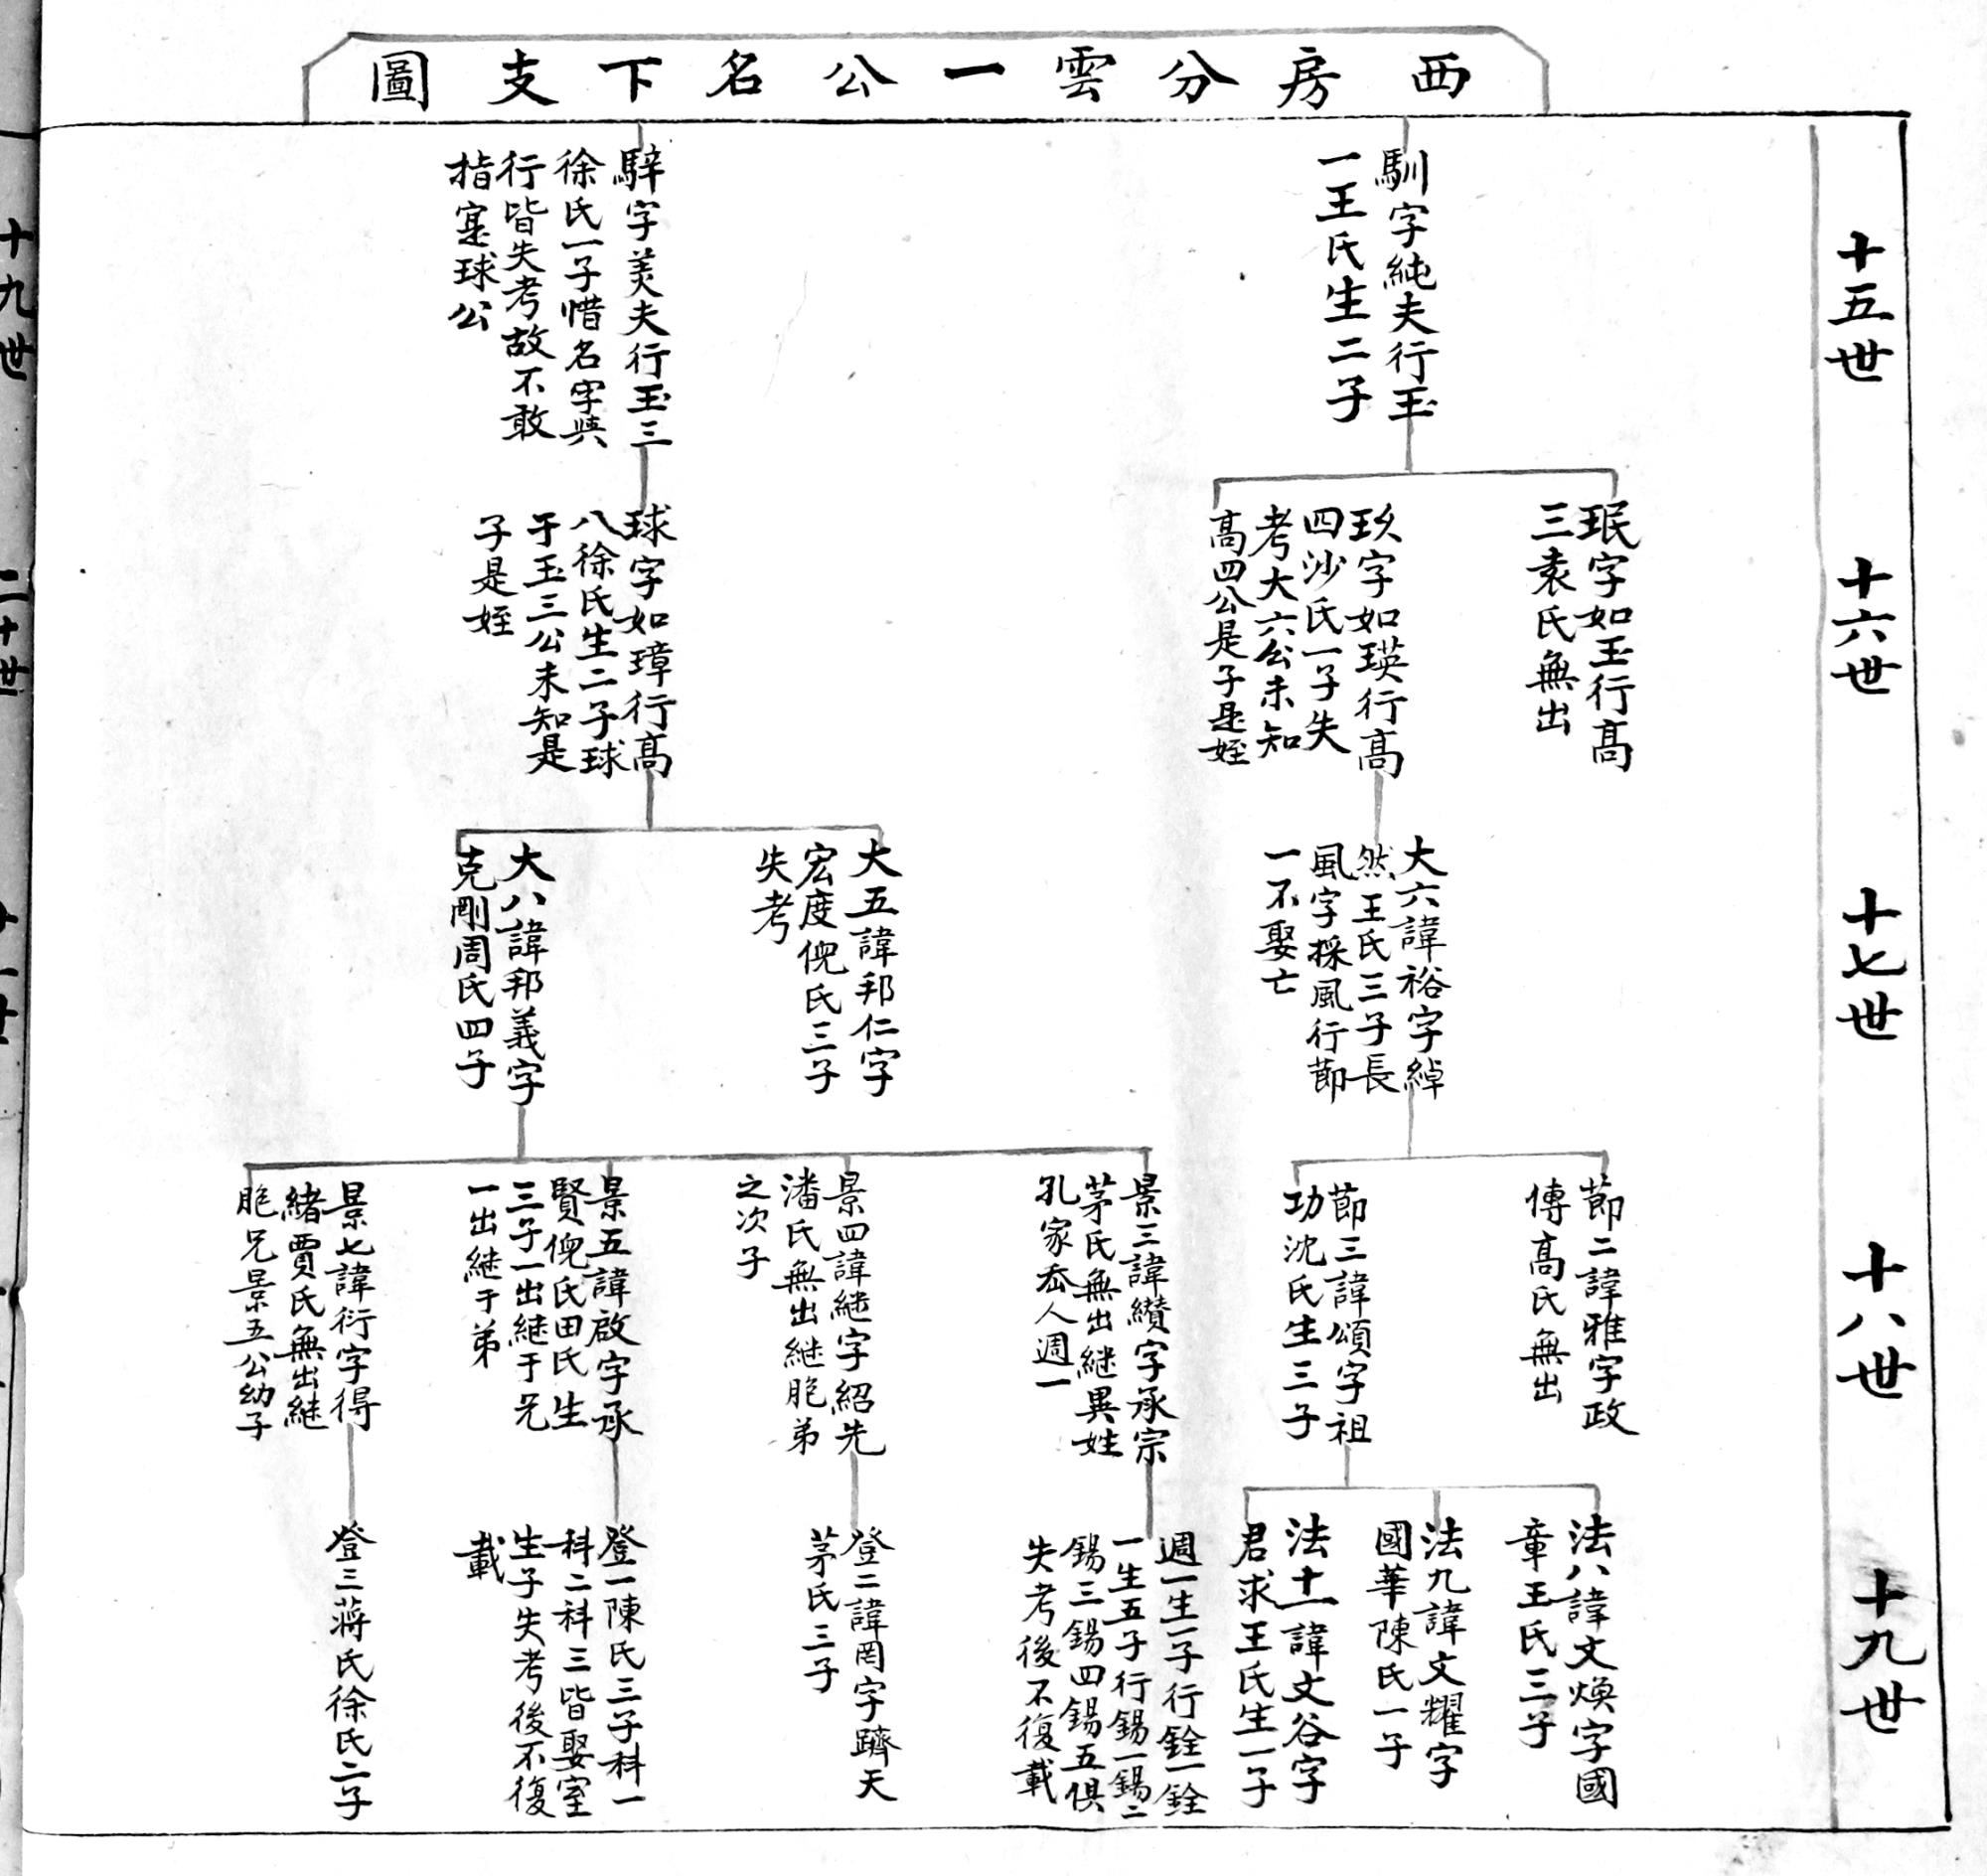 西房分雲一公名下支圖
十五世
馴字純夫行玉
一王氏生二子
騂字美夫行玉三
徐氏一子惜名字與
行皆失考故不敢
指寔球公
十六世
珉字如玉行高
三袁氏無出
玖字如瑛行高
四沙氏一子失
考大六公未知
高四公是子是姪
球字如璋行高
八徐氏生二子球
于玉三公未知是
子是姪
十七世
大六諱裕字綽
然王氏三子長
風字採風行節
一不娶亡
大五諱邦仁字
宏度倪氏三子
失考
大八諱邦義字
克剛周氏四子
十八世
節二諱雅字政
傳高氏無出
節三諱頌字祖
功沈氏生三子
景三諱纘字承宗
茅氏無出継異姓
孔家岙人週一
景四諱継字紹先
潘氏無出継胞弟
之次子
景五諱啟字承
賢倪氏田氏生
三子一出継于兄
一出継于弟
景七諱衍字得
緒賈氏無出継
胞兄景五公幼子
十九世
法八諱文煥字國
章王氏三子
法九諱文耀字
國華陳氏一子
法十一諱文谷字
君求王氏生一子
週一生一子行銓一銓
一生五子行錫一錫二
錫三錫四錫五俱
失考後不復載
登二諱罔字躋天
茅氏三子
登一陳氏三子科一
科二科三皆娶室
生子失考後不復
載
登三蔣氏徐氏二子
十九世
二十世